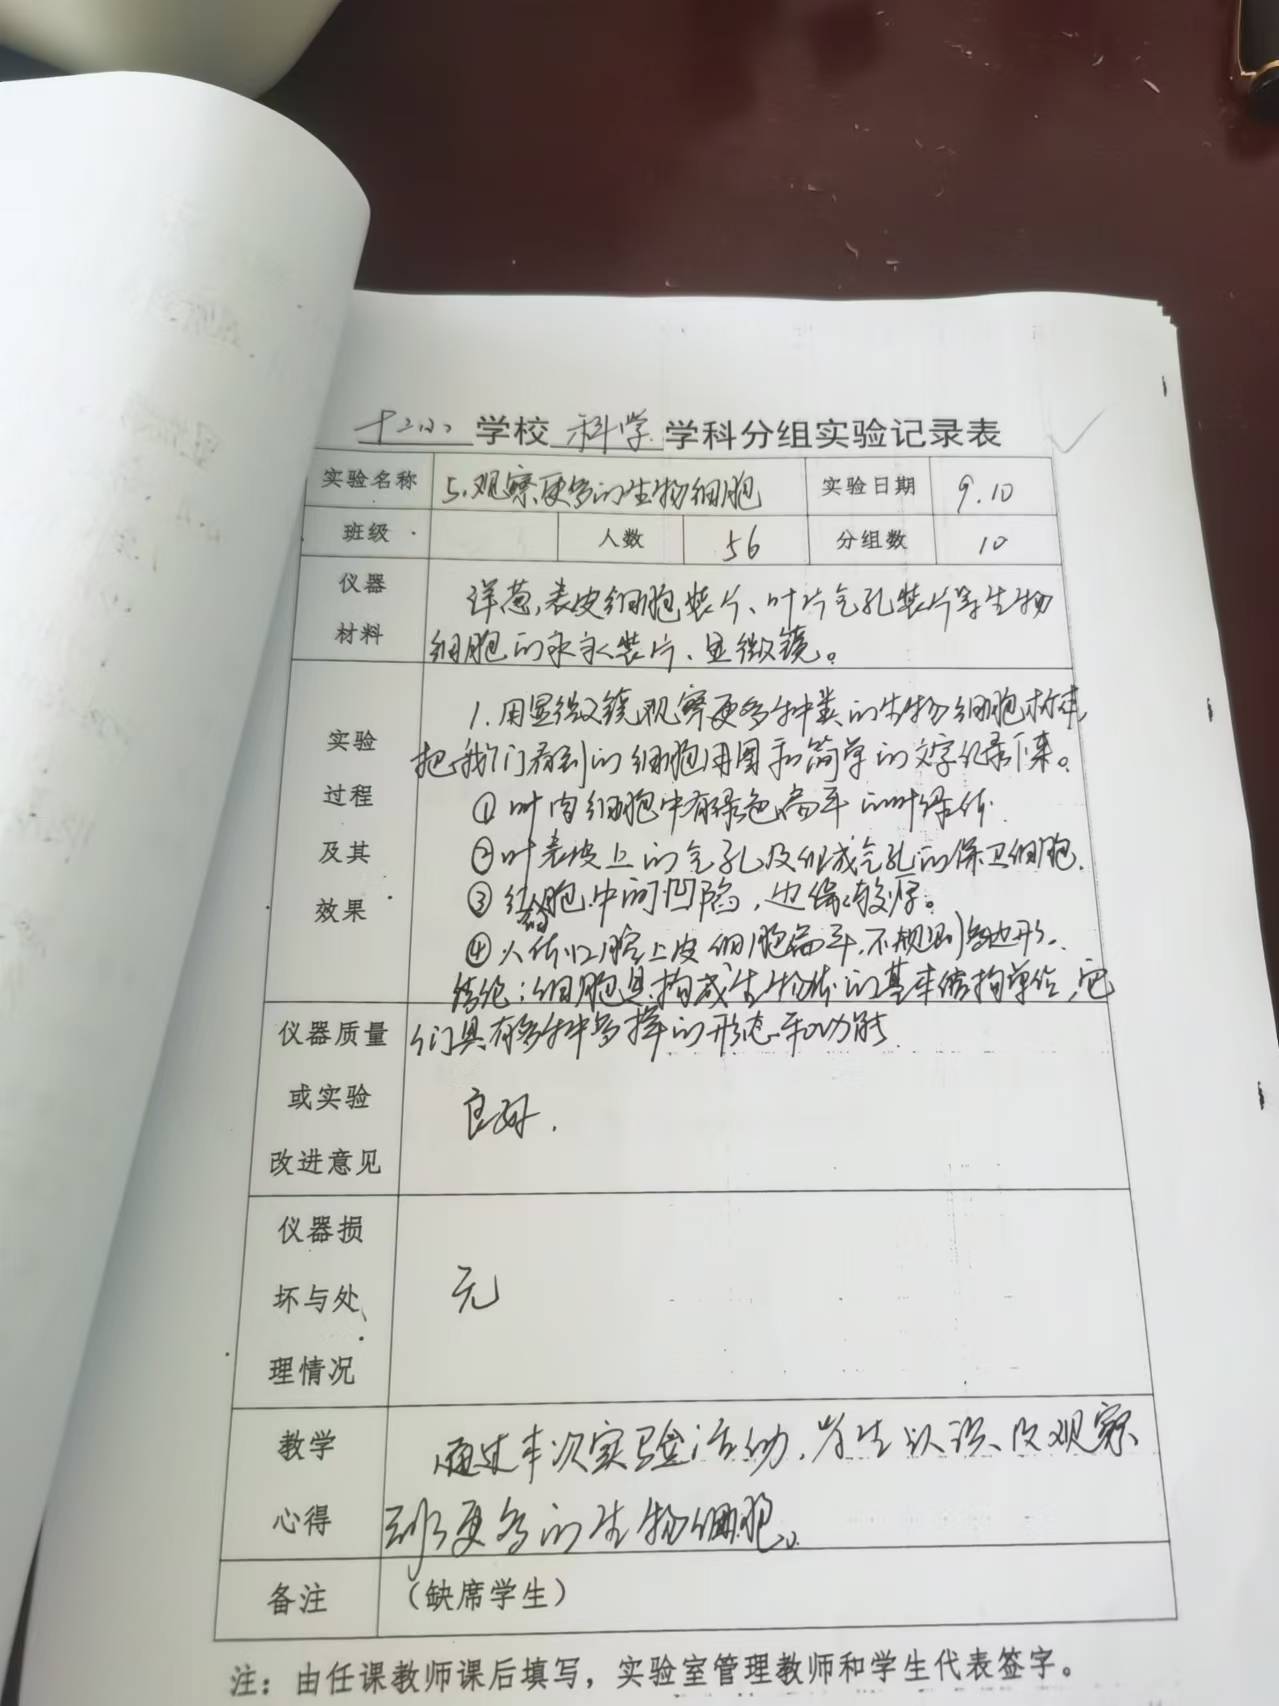 十二小 学校 科学 学科分组实验记录表
实验名称 5.观察更多的生物细胞 实验日期 9.10
班级 人数 56 分组数 10
仪器 材料 洋葱表皮细胞装片、叶片气孔装片等生物
细胞的永久装片、显微镜。
实验 过程 及其 效果 1.用显微镜观察更多种类的生物细胞标本,
把我们看到的细胞用图和简单的文字记录下来。
①叶肉细胞中有绿色扁平的叶绿体.
②叶表皮上的气孔及组成气孔的保卫细胞.
③红细胞中间凹陷,边缘较厚。
④人体口腔上皮细胞扁平,不规则多边形.
结论:细胞是构成生物体的基本结构单位,它
们具有多种多样的形态和功能.
仪器质量
或实验
改进意见
良好.
仪器损
坏与处
理情况
无
教学 心得 通过本次实验活动,学生认识及观察
到了更多的生物细胞。
备注 (缺席学生)
注:由任课教师课后填写,实验室管理教师和学生代表签字。